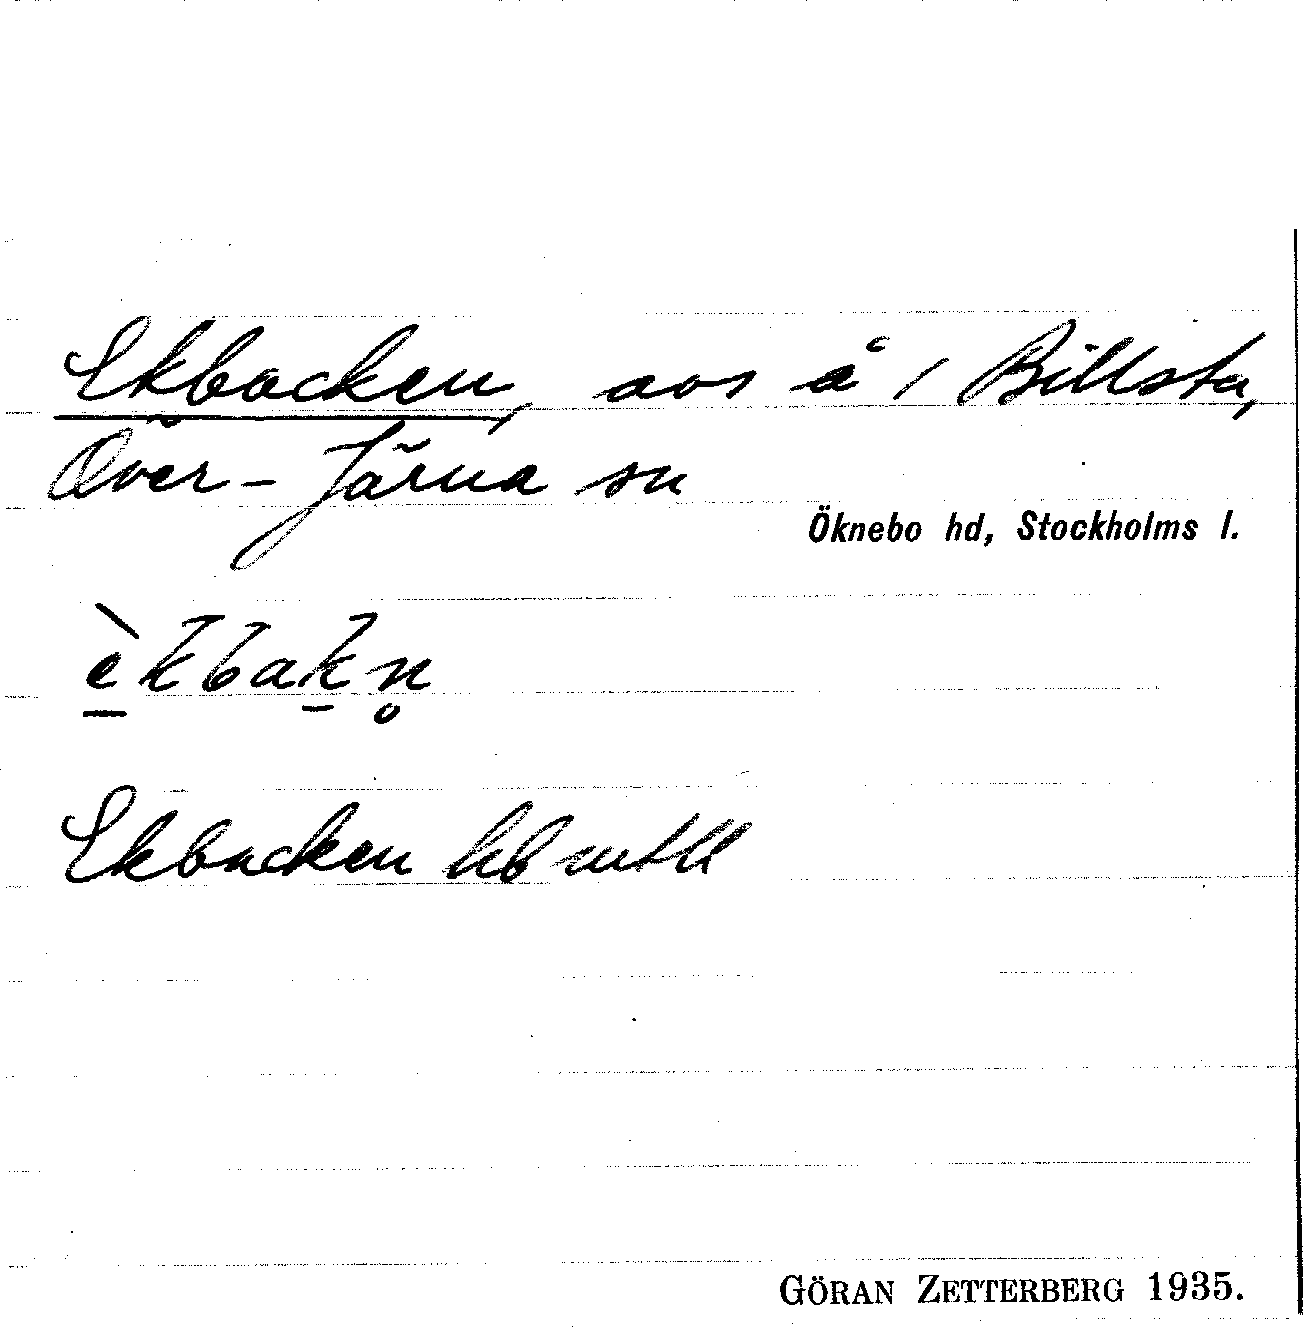 Ekbacken, avs å 1 Billsta,
Över-Järna sn
Öknebo hd, Stockholms l.
è̱kbaḵn̥
Ekbacken hb mtll
GÖRAN ZETTERBERG 1935.